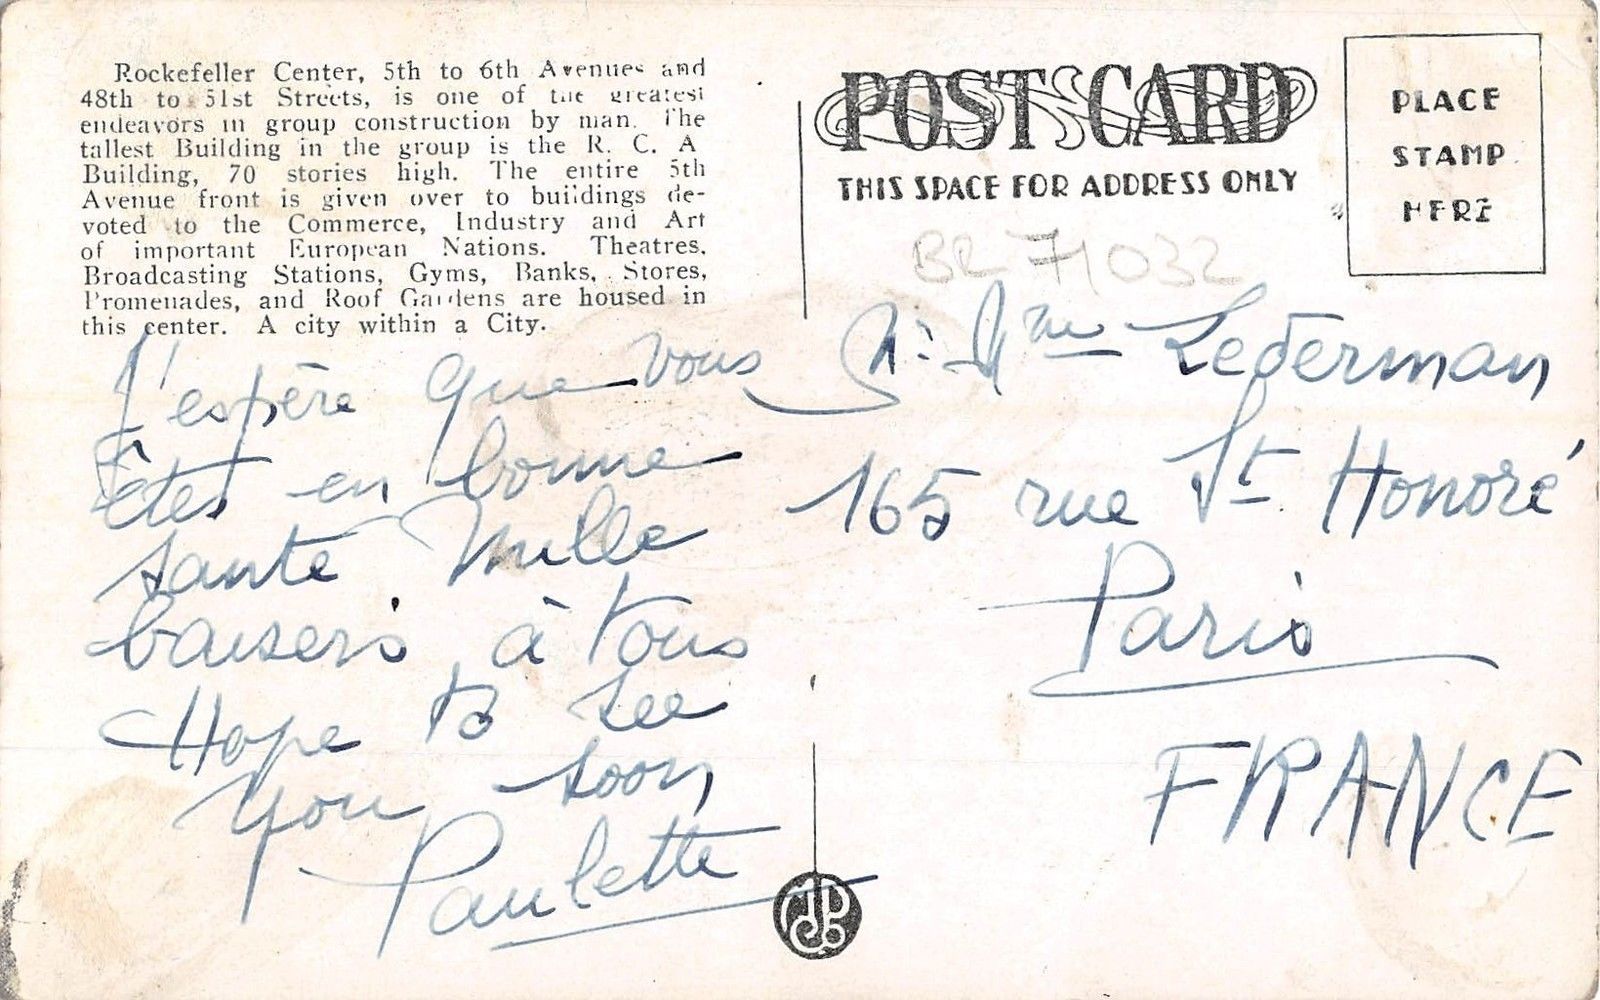 Rockefeller Center, 5th to 6th Avenues and
48th to 51st Streets, is one of the greatest
endeavors in group construction by man. The
tallest Building in the group is the R. C. A
Building, 70 stories high. The entire 5th
Avenue front is given over to buildings de-
voted to the Commerce, Industry and Art
of important European Nations. Theatres,
Broadcasting Stations, Gyms, Banks, Stores,
Promenades, and Roof Gardens are housed in
this center. A city within a City.
J'espère que vous
êtes en bonne
santé Mille
baisers à tous
Hope to see
you soon
Paulette
POST CARD
THIS SPACE FOR ADDRESS ONLY
PLACE
STAMP
HERE
BR 71032
M. Mme Lederman
165 rue St Honoré
Paris
FRANCE